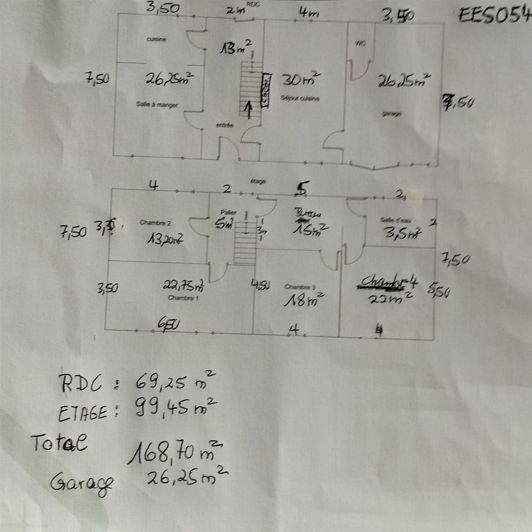 3,50 2m RDC 4m 3,50 EES054
cuisine 13 m² WC
7,50 26,25m² 30m² 26,25m²
Salle à manger Séjour cuisine 7,50
garage
entrée
étage
4 2 5 2,
Chambre 2 Palier Salle d'eau 2
7,50 13,20m² 5m² 15m² 3,5m²
7,50
3,50 22,75m² 4,50 Chambre 3 Chambre 4 5,50
Chambre 1 18m² 22m²
6,50 4 4
RDC : 69,25 m²
ETAGE : 99,45 m²
Total 168,70 m²
Garage 26,25 m²